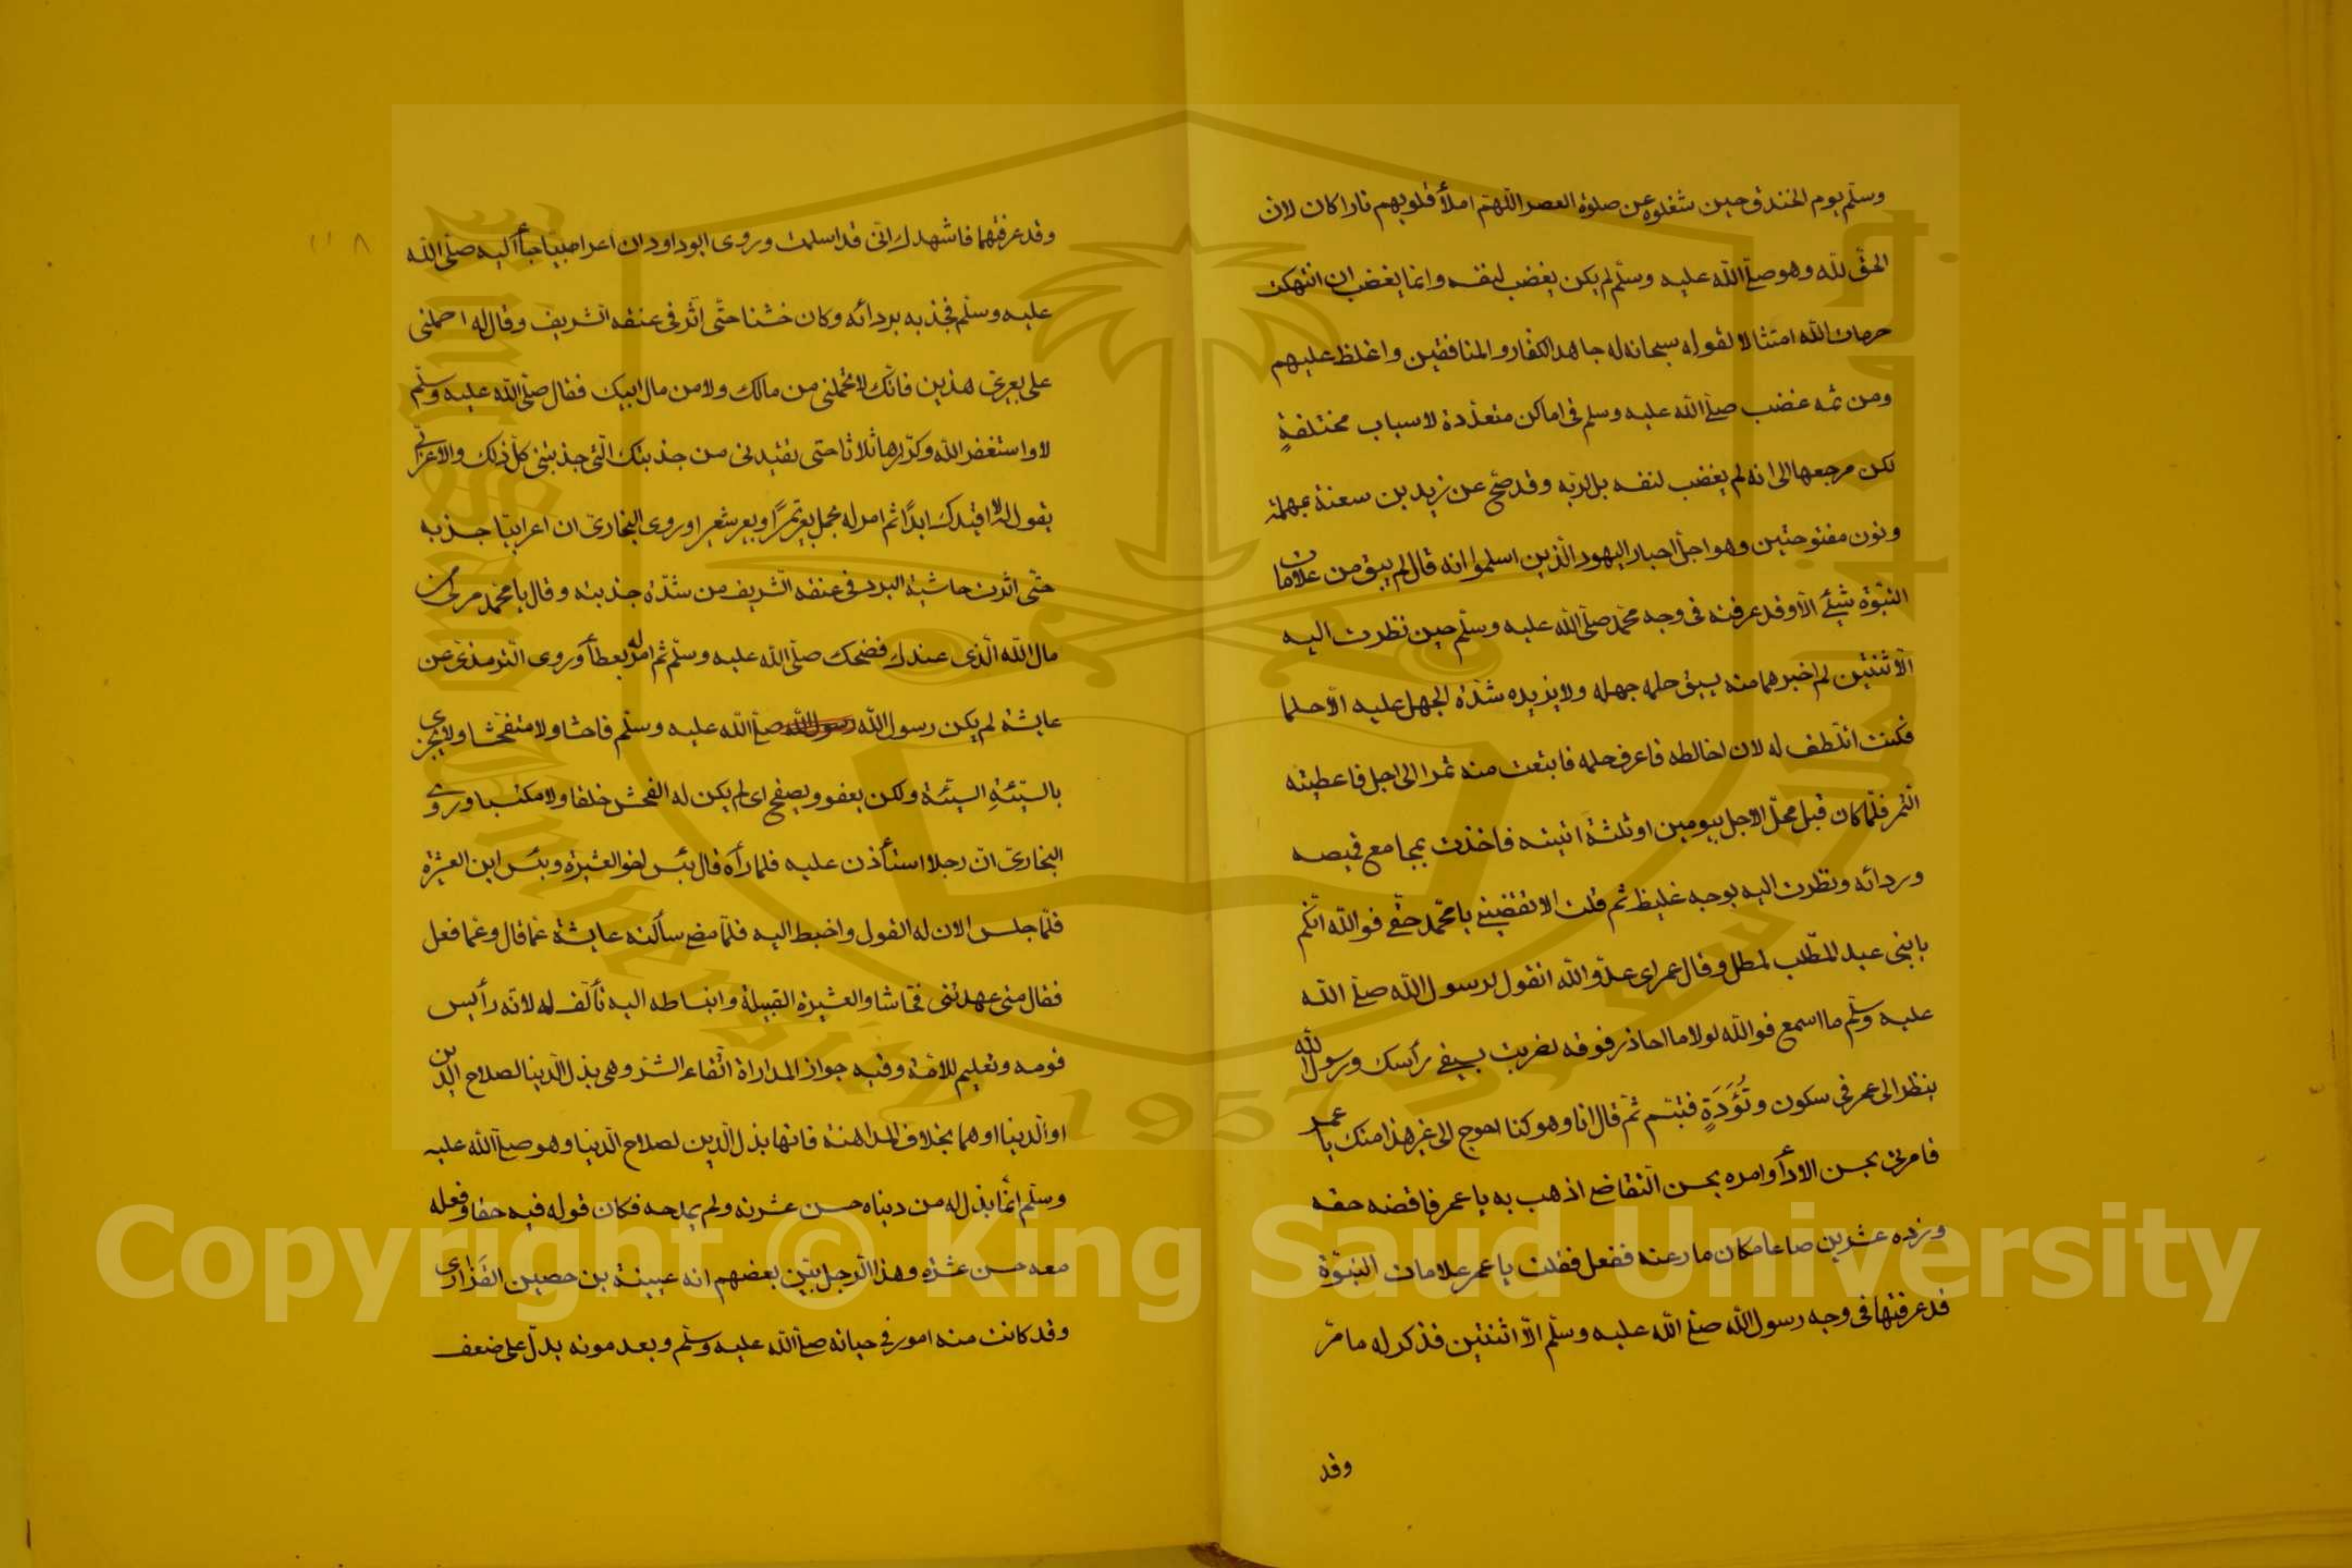 وسلّم يوم الخندق حين شغلوه عن صلوة العصر اللّهمّ املأ قلوبهم نارا كان لان
الحقّ للّه وهو صلّى اللّه عليه وسلّم لم يكن يغضب لنفسه وانما يغضب ان انتهكت
حرمات اللّه امتثالا لقوله سبحانه له جاهد الكفار والمنافقين واغلظ عليهم
ومن ثمه غضب صلّى اللّه عليه وسلم فى اماكن متعدّدة لاسباب مختلفةٍ
لكن مرجعها الى انه لم يغضب لنفسه بل لربّه وقد صحّ عن زيد بن سعنة بمهملة
ونون مفتوحتين وهو اجلّ احبار اليهود الّذين اسلموا انه قال لم يبق من علامات
النبوّة شيئ الّا وقد عرفته فى وجه محمّد صلّى اللّه عليه وسلّم حين نظرت اليه
الّا ثنتين لم اخبرهما منه يسبق حلمه جهله ولا يزيده شدّة الجهل عليه الّا حلما
فكنت اتلطف له لان اخالطه فاعرف حلمه فابتعت منه تمرا الى اجل فاعطيته
الثمر فلمّا كان قبل محلّ الاجل بيومين او ثلثة اتيته فاخذت بمجامع قميصه
وردائه ونظرت اليه بوجه غليظ ثم قلت الا تقضينى يا محمّد حقّى فو اللّه انّكم
يا بنى عبد المطّلب لمطل وقال عمر اى عدوّ اللّه اتقول لرسول اللّه صلّى اللّه
عليه وسلّم ما اسمع فو اللّه لولا ما احاذر فوقه لضربت بسيفى رأسك ورسول اللّه
ينظر الى عمر فى سكون وتُؤَدَةٍ فتبسّم ثمّ قال انا وهو كنا احوج الى غير هذا منك يا عمر
فامرنى بحسن الادأ وامره بحسن التقاضى اذهب به يا عمر فاقضه حقه
وزده عشرين صاعا مكان ما رعته ففعل فقلت يا عمر علامات النبوّة
قد عرفتها فى وجه رسول اللّه صلى اللّه عليه وسلّم الّا اثنتين فذكر له ما مرّ
وقد
١١٨
وقد عرفتهما فاشهدك انّى قد اسلمت وروى ابو داود ان اعرابيّا جأ اليه صلّى اللّه
عليه وسلّم فجذبه بردائه وكان خشنا حتّى اثّر فى عنقه الشريف وقال له احملنى
على بعيرىّ هذين فانّك لا تحملنى من مالك ولا من مال ابيك فقال صلّى اللّه عليه وسلّم
لا واستغفر اللّه وكرّرها ثلاثا حتى تقيدنى من جذبتك الّتى جذبتنى كلّ ذلك والاعرابّى
يقول له لا اقيدك ابدًا ثم امر له بحمل بعير تمرًا وبعير شعيرا وروى البخارىّ ان اعرابيّا جذبه
حتّى اثرت حاشية البرد فى عنقه الشريف من شدّة جذبته وقال يا محمّد مر لى من
مال اللّه الّذى عندك فضحك صلّى اللّه عليه وسلّم ثم امر له بعطأ وروى الترمذى عن
عايشة لم يكن رسول اللّه رسول اللّه صلّى اللّه عليه وسلّم فاحشا ولا متفحّشا ولا يجزى
بالسيّئةِ السيّئة ولكن يعفو ويصفح اى لم يكن له الفحش خلقا ولا مكتسبا وروى
البخارىّ انّ رجلا استأذن عليه فلما رأه قال بئس اخو العشيرة وبئس ابن العشيرة
فلمّا جلس الان له القول وانبسط اليه فلمّا مضى سألته عايشة عمّا قال وعمّا فعل
فقال متى عهدتنى فحّاشا والعشيرة القبيلة وانبساطه اليه تألّف له لانّه رأيس
قومه وتعليم للامّة وفيه جواز المداراة اتّقاء الشرّ وهى بذل الدّنيا لصلاح الدّين
او الدنيا او هما بخلاف المداهنة فانها بذل الدّين لصلاح الدّنيا وهو صلّى اللّه عليه
وسلّم انّما بذل له من دنياه حسن عشرته ولم يمدحه فكان قوله فيه حقا وفعله
معه حسن عشرةٍ وهذا الرّجل بيّن بعضهم انه عيينة بن حصين الفَزارى
وقد كانت منه امور فى حياته صلّى اللّه عليه وسلّم وبعد موته يدلّ على ضعف
Copyright © King Saud University
King Saud University
1957